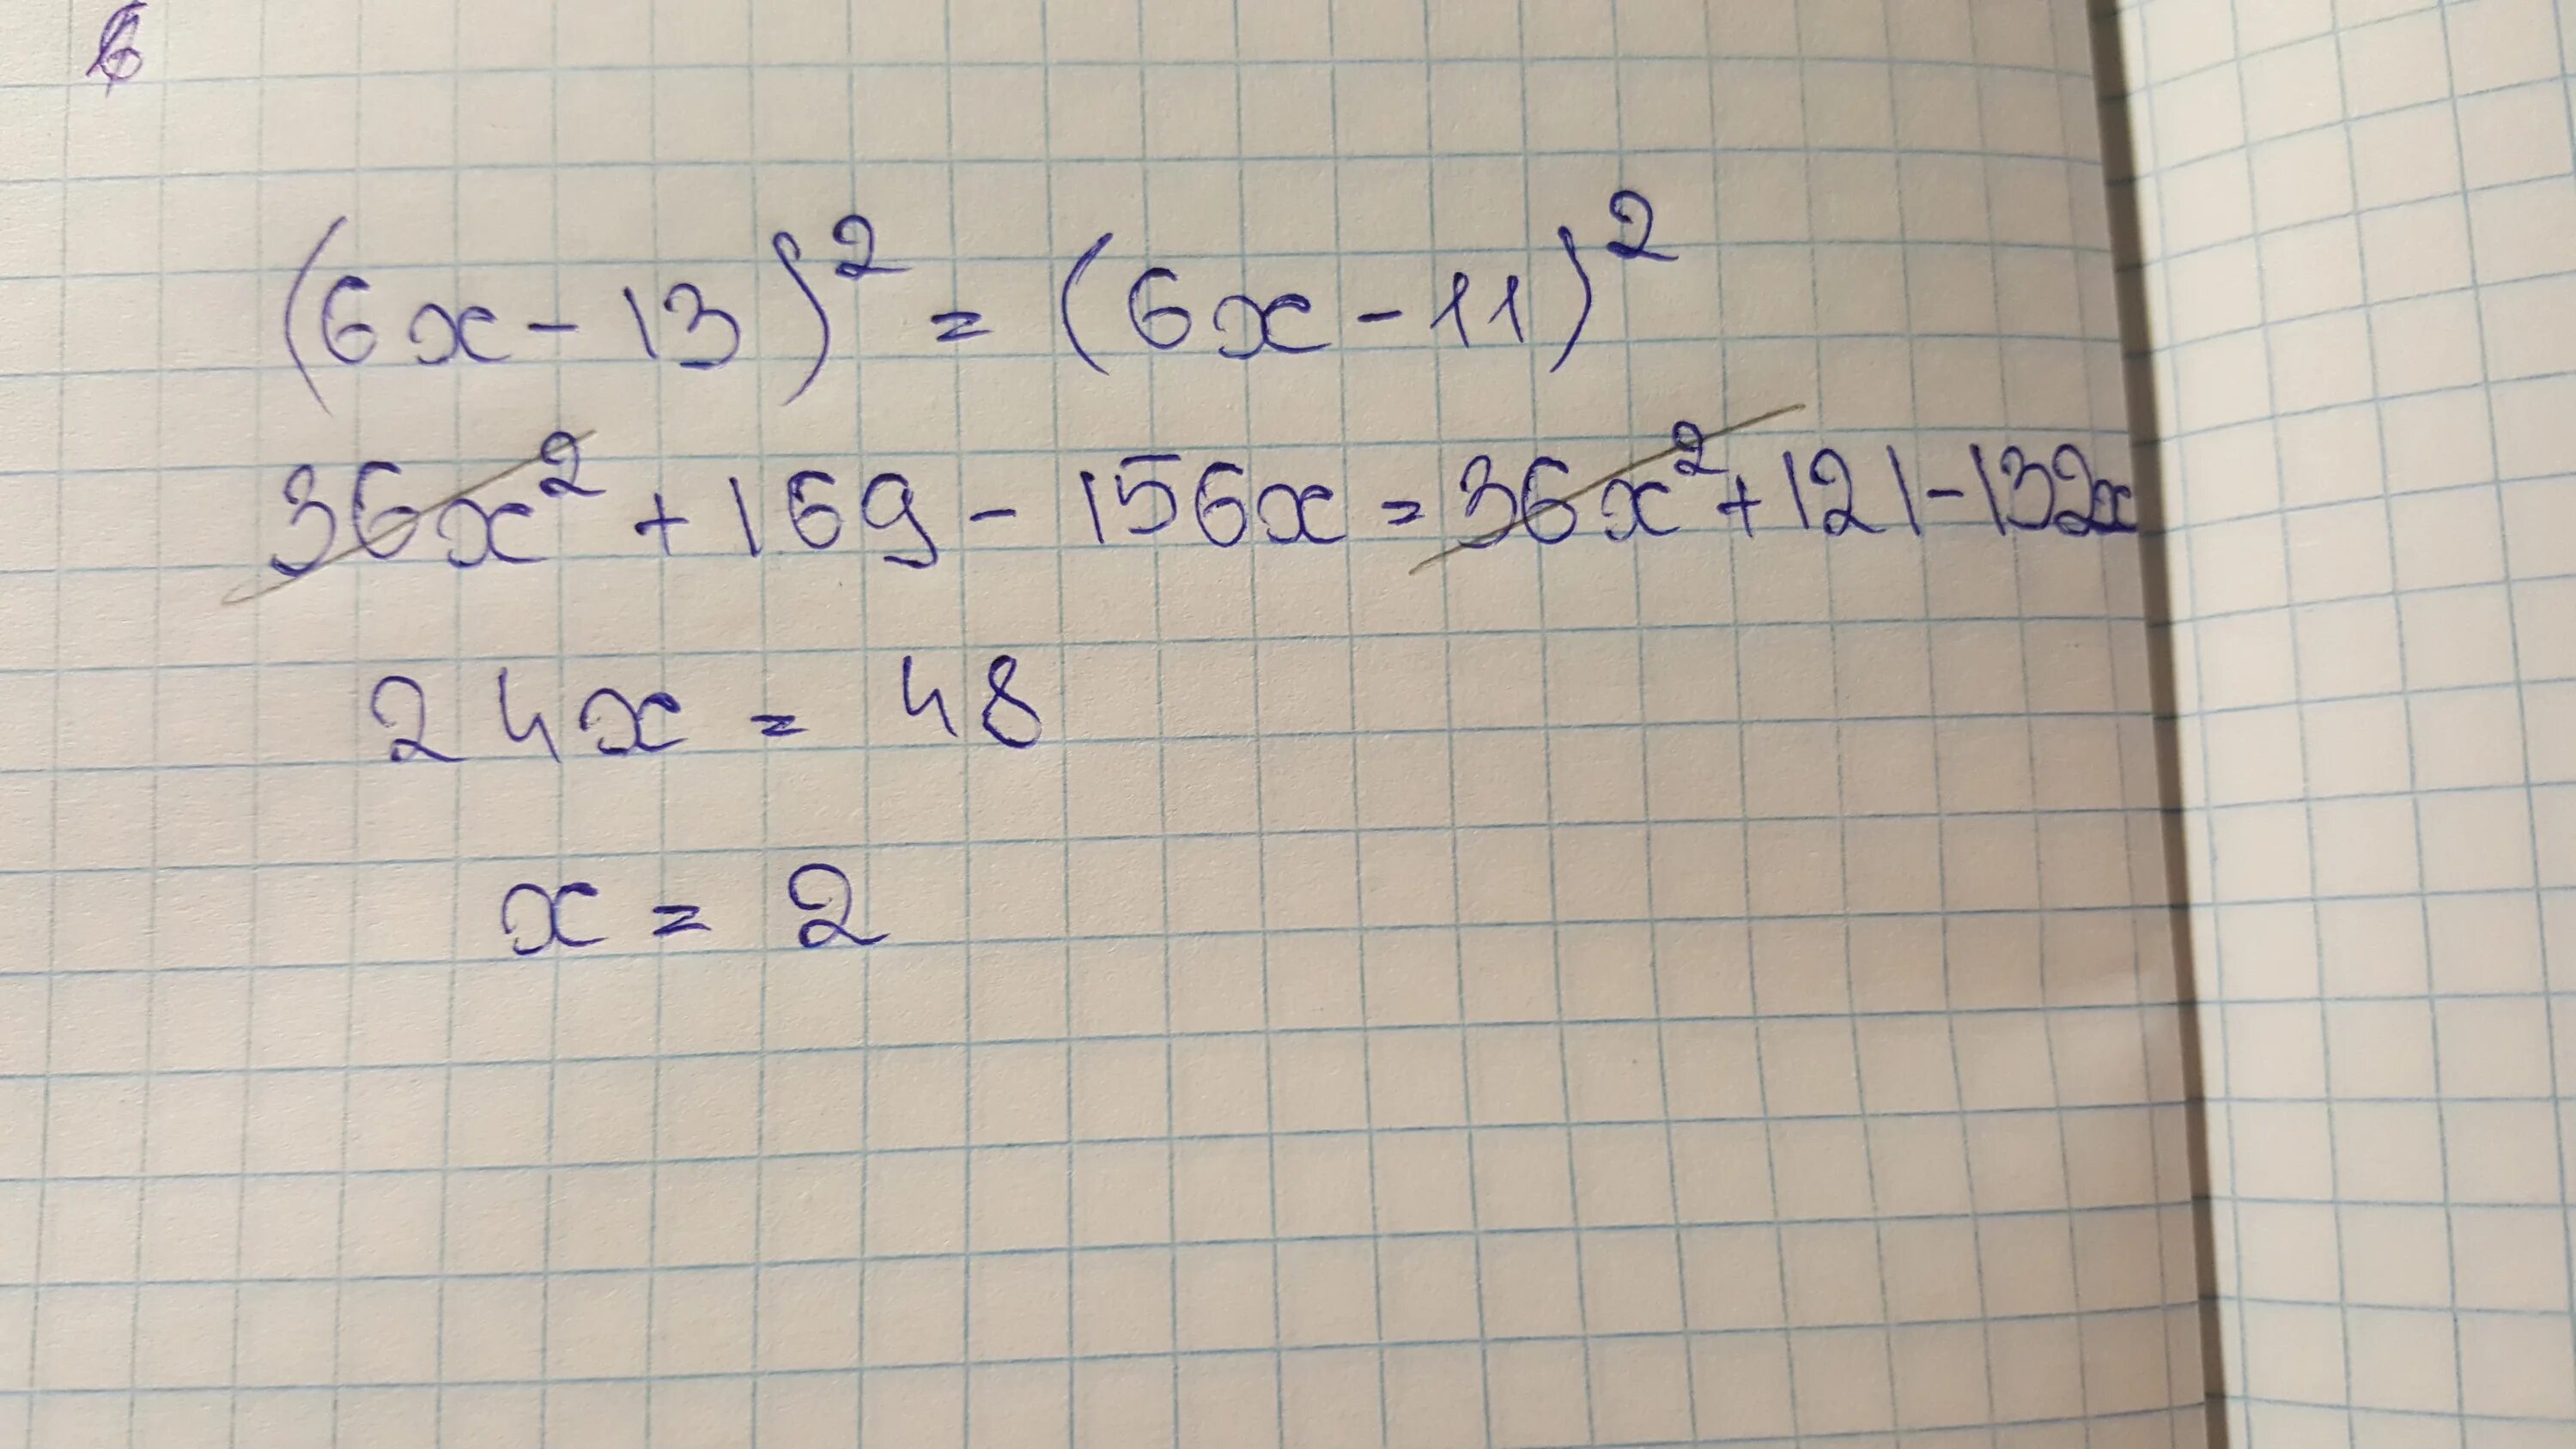 (6x-13)² = (6x-11)²
36x² + 169 - 156x = 36x² + 121 - 132x
24x = 48
x = 2